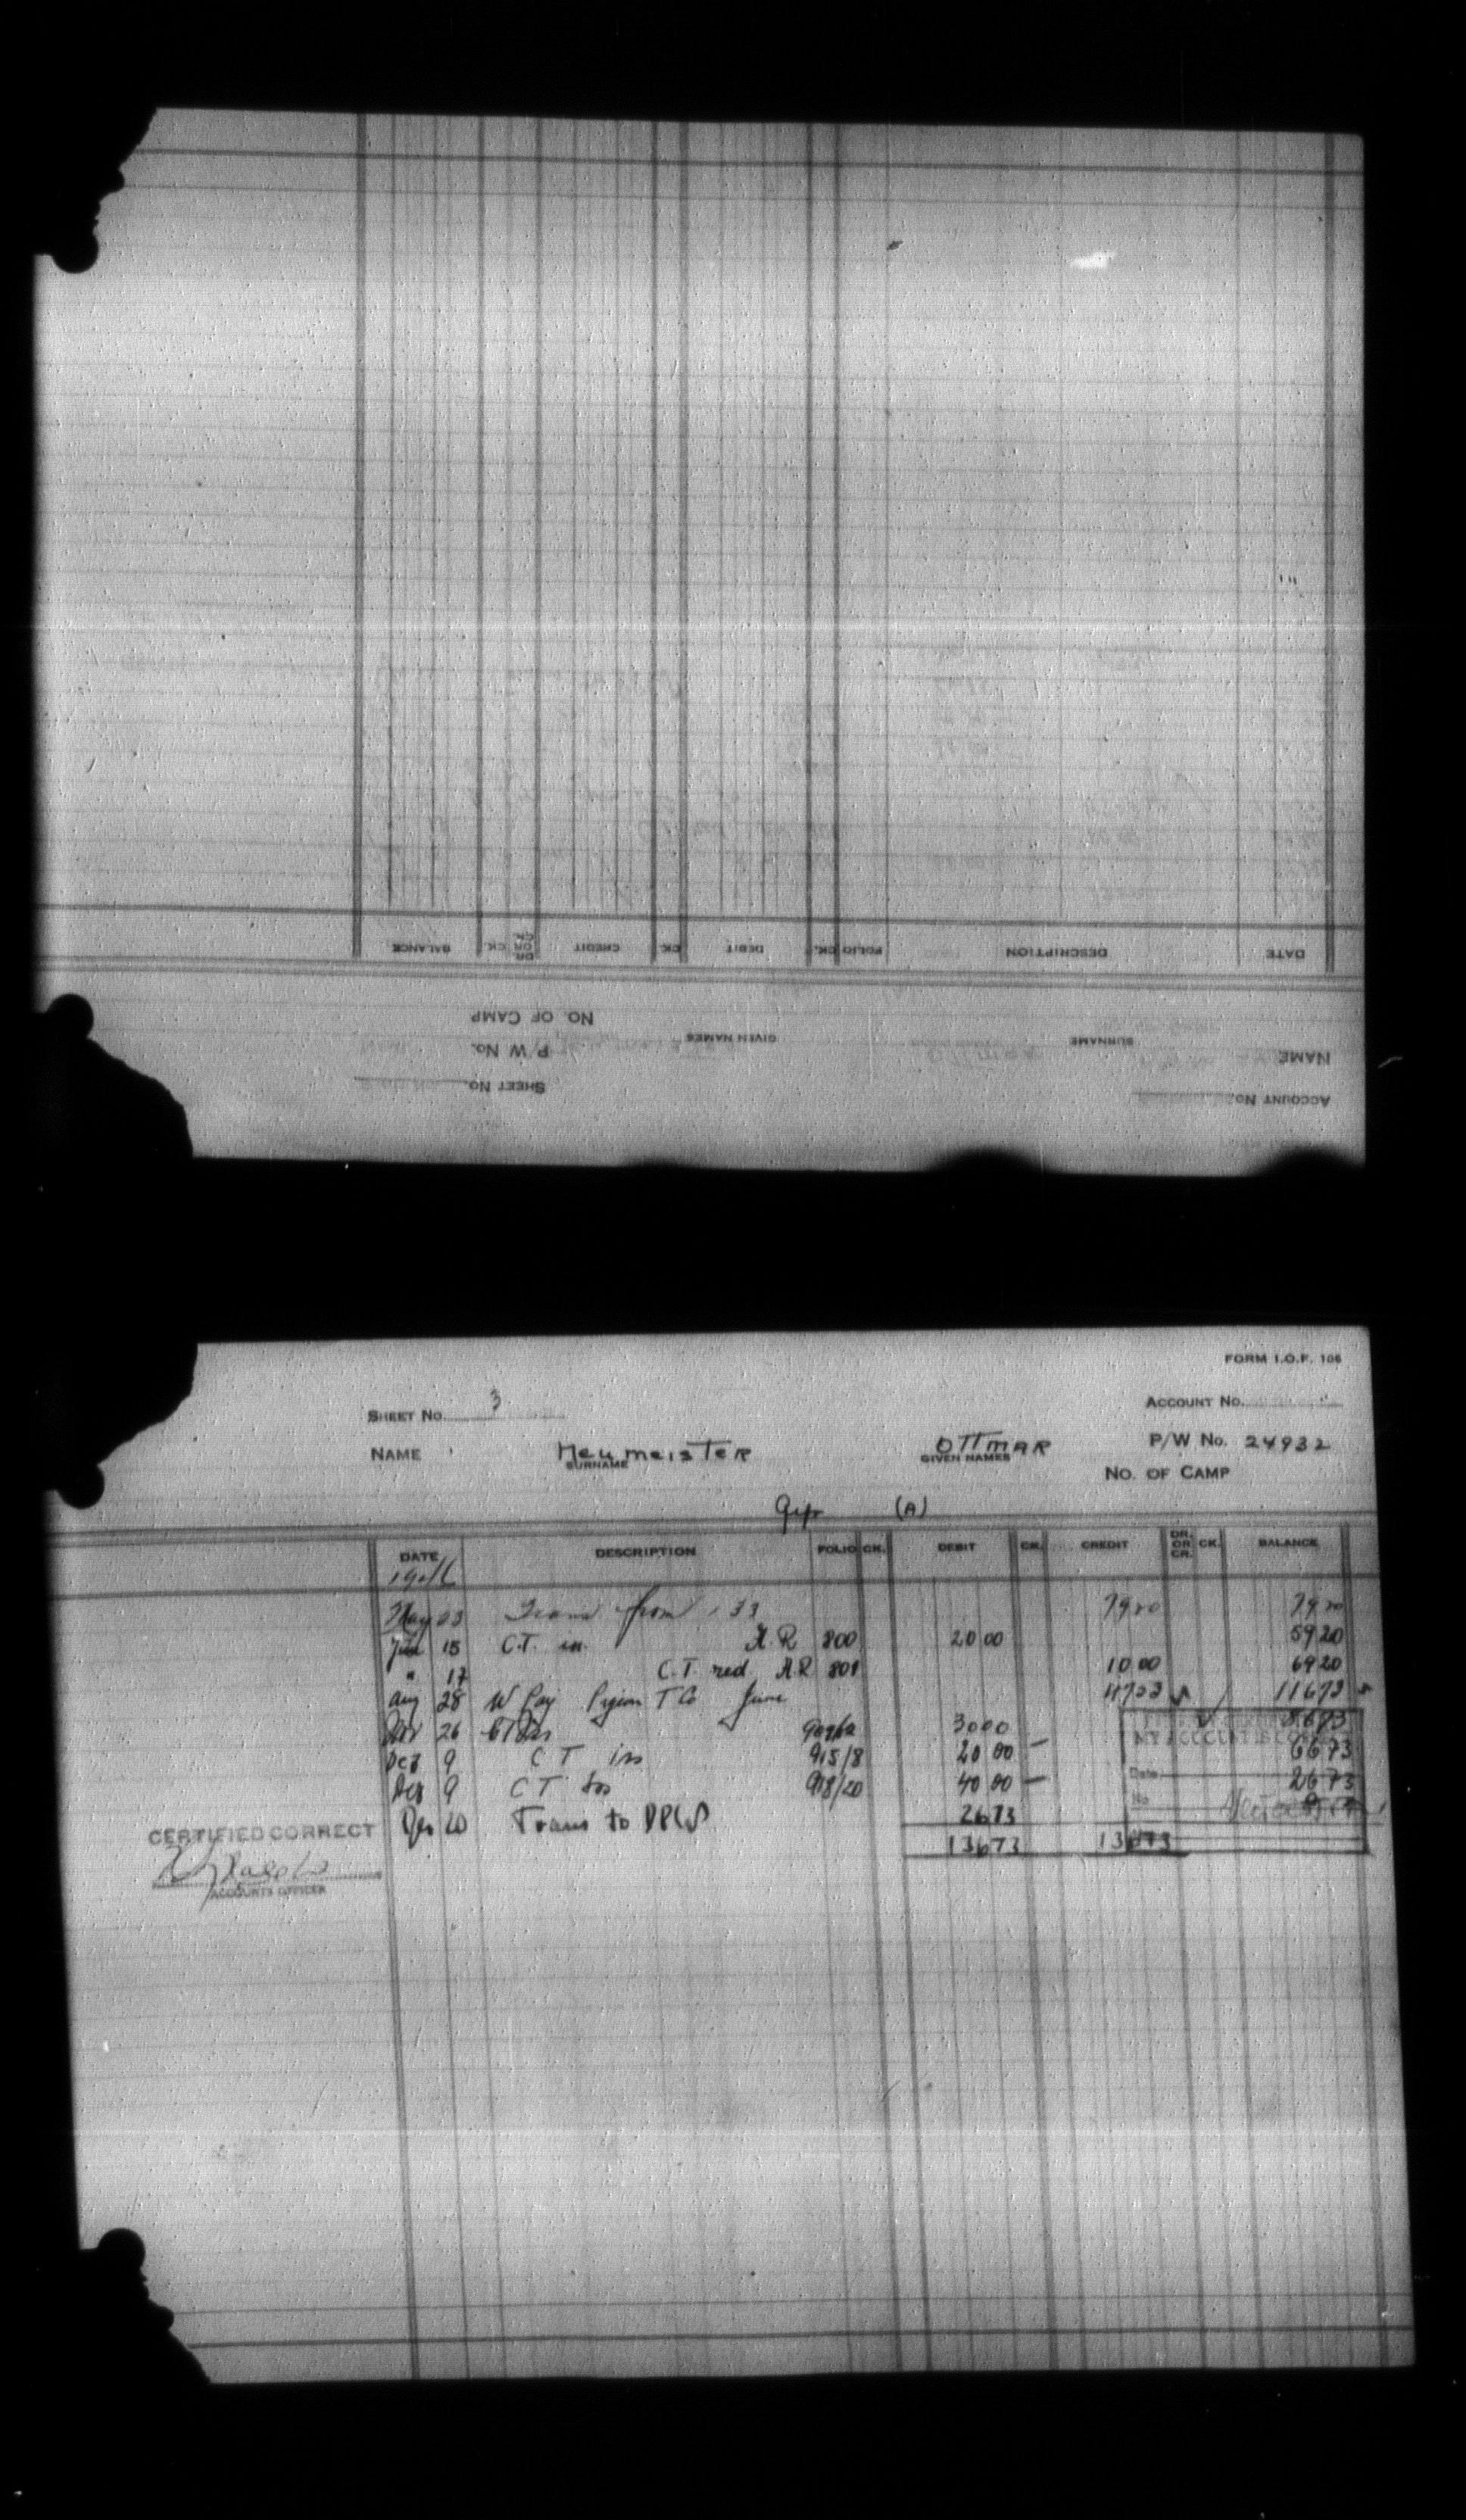 BALANCE CK. DR OR CR. CREDIT CK. DEBIT CK. FOLIO DESCRIPTION DATE
NO. OF CAMP
GIVEN NAMES SURNAME
P/W No. NAME
SHEET No. ACCOUNT No.
FORM I.O.F. 106
SHEET No. 3 ACCOUNT No.
NAME Neumeister OTTMAR P/W No. 24932
SURNAME GIVEN NAMES
NO. OF CAMP
(A)
DATE DESCRIPTION FOLIO CK. DEBIT CK. CREDIT DR. OR CR. CK. BALANCE
1946
May 23 Trans from 33 79 20 79 20
June 15 C.T. iss A.R 800 20 00 59 20
" 17 C.T. red A.R 801 10 00 69 20
Aug 28 W Pay Pigeon T Co June 47 53 116 73
26 30 00 86 73
Dec 9 C T iss 915/8 20 00 66 73
Dec 9 C T iss 918/20 40 00 26 73
MY ACCOUNT IS CORRECT
Date
No
20 Trans to DPW 26 73
CERTIFIED CORRECT
136 73 136 73
ACCOUNTS OFFICER